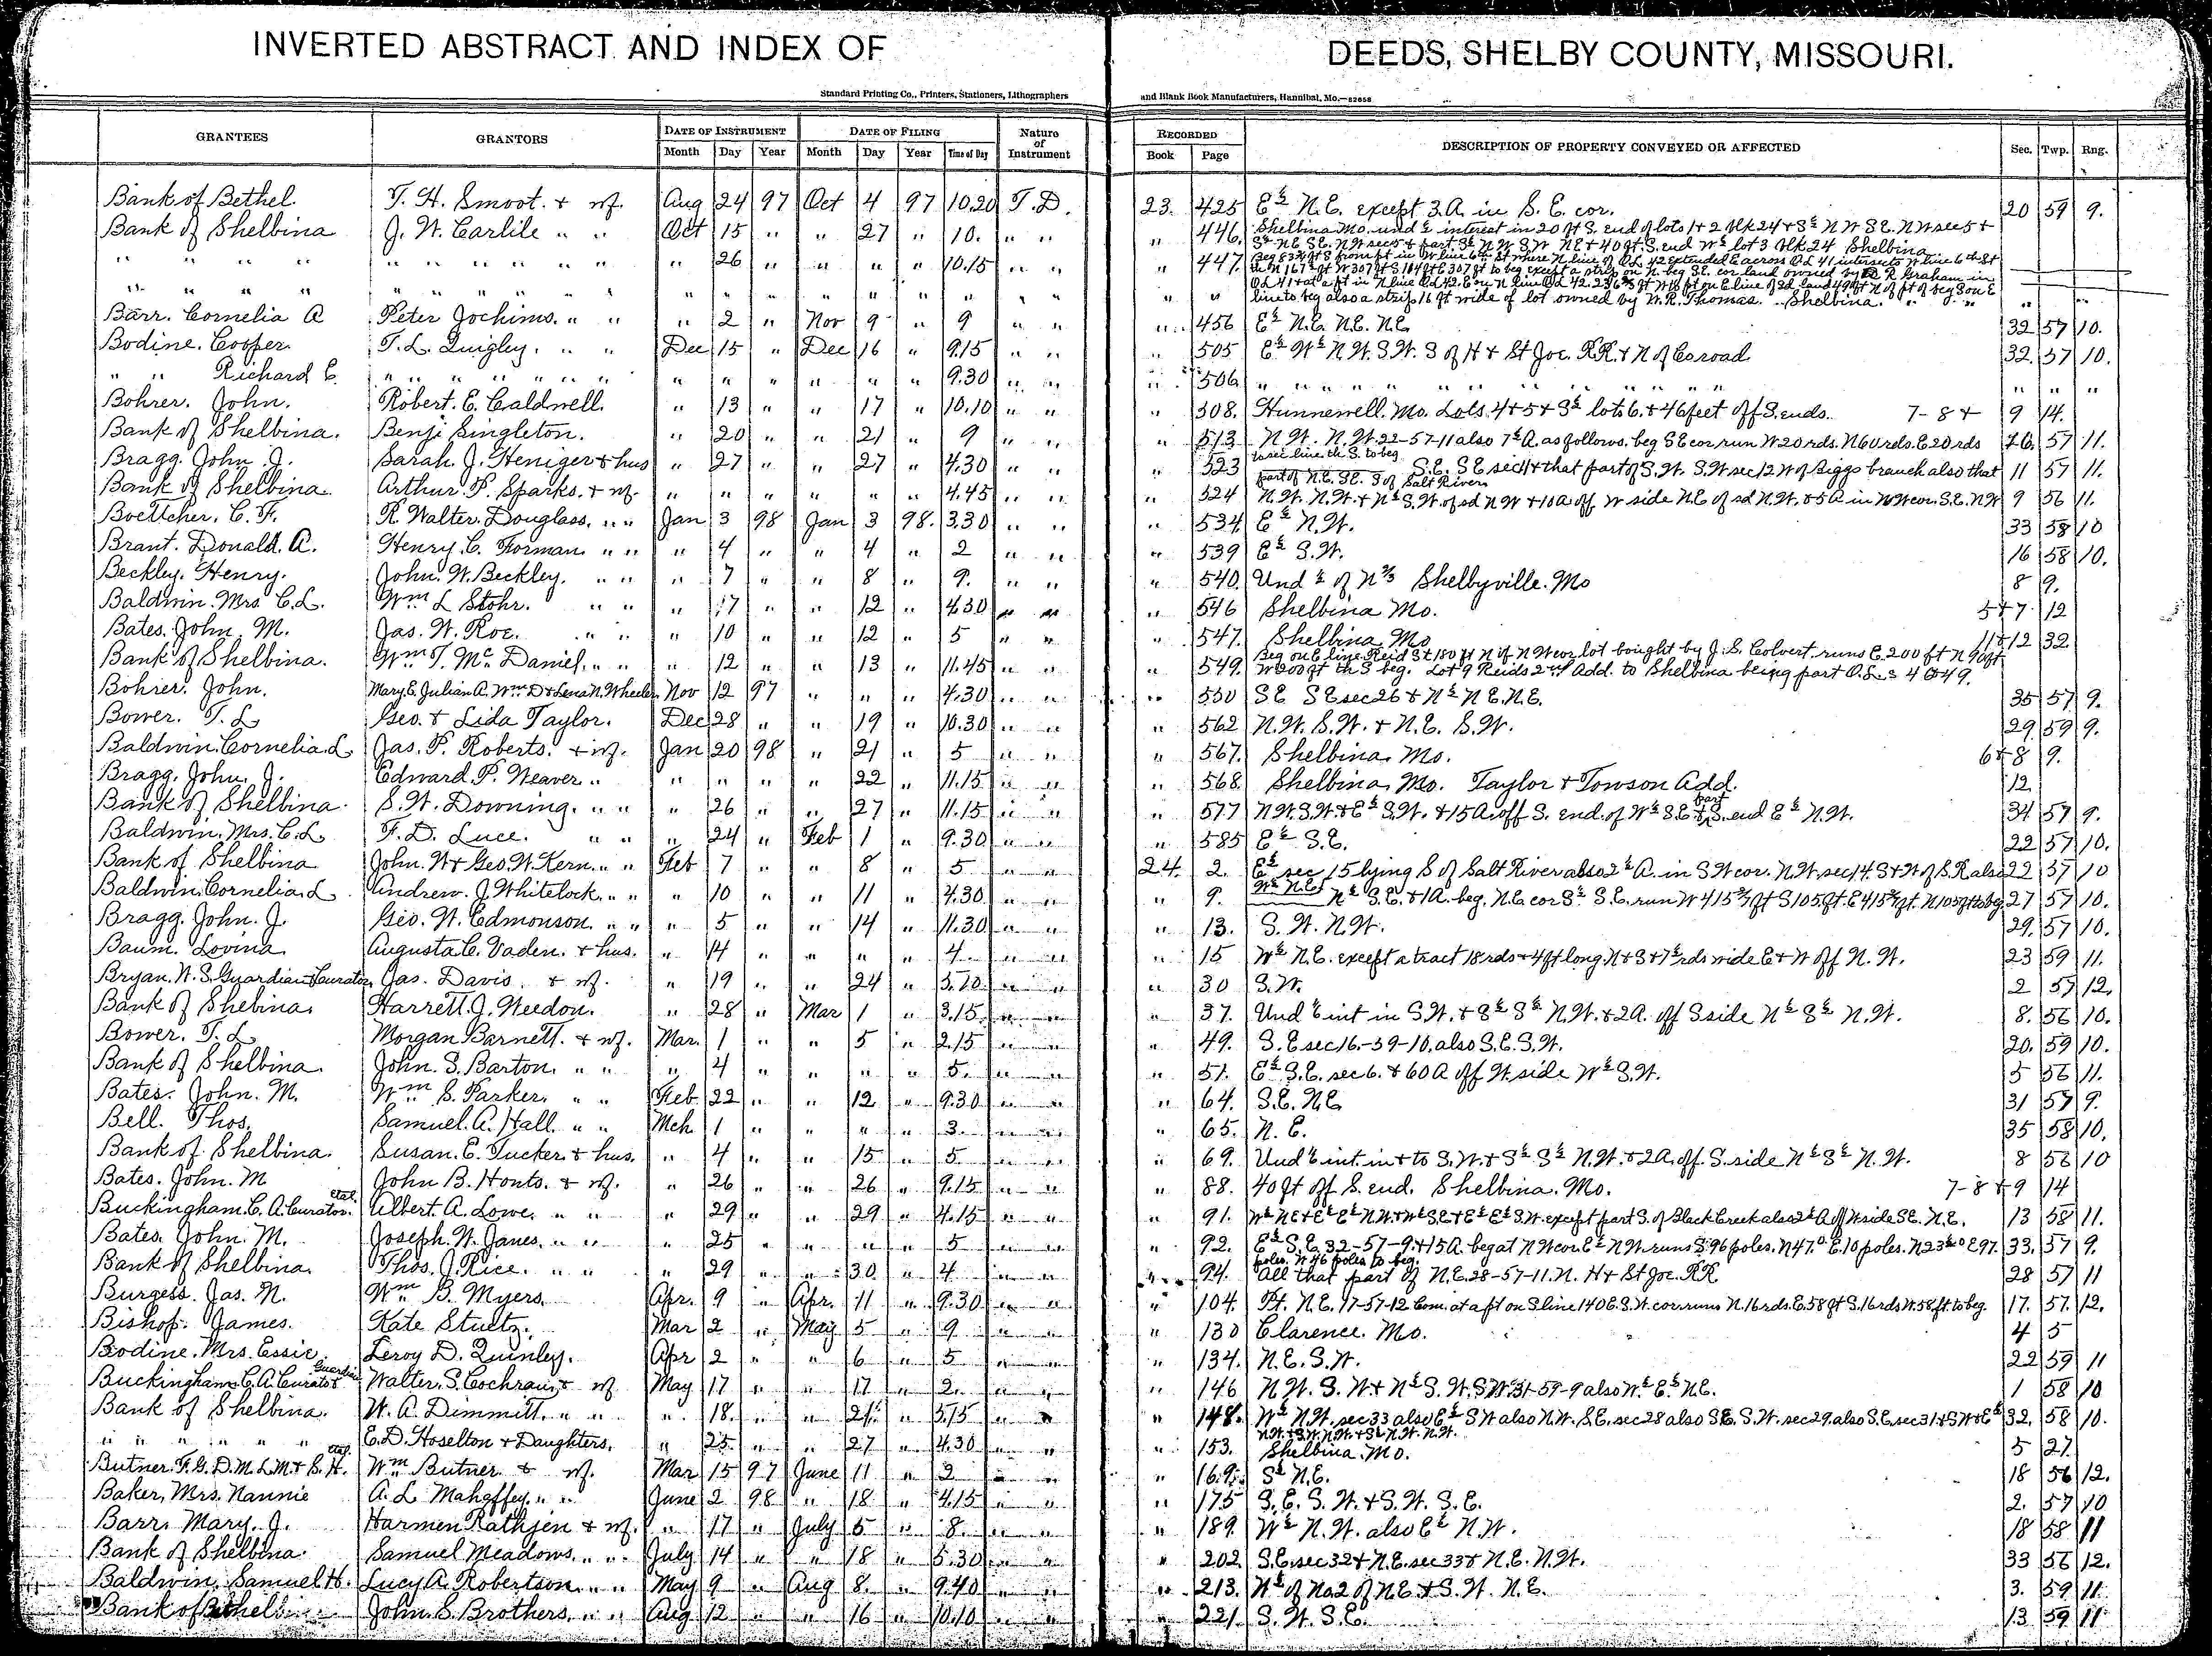 INVERTED ABSTRACT AND INDEX OF DEEDS, SHELBY COUNTY, MISSOURI.
Standard Printing Co., Printers, Stationers, Lithographers and Blank Book Manufacturers, Hannibal, Mo.—82658
GRANTEES GRANTORS DATE OF INSTRUMENT DATE OF FILING Nature of Instrument RECORDED DESCRIPTION OF PROPERTY CONVEYED OR AFFECTED Sec. Twp. Rng.
Month Day Year Month Day Year Time of Day Book Page
Bank of Bethel. T. H. Smoot. + wf. Aug 24 97 Oct 4 97 10.20 T.D. 23. 425 E½ N.E. except 3.A. in S.E. cor. 20 59 9.
Bank of Shelbina J. W. Carlile " " Oct 15 " " 27 " 10. " " " 446. Shelbina Mo. und ½ interest in 20 ft S. end of lots 1+2 Blk 24 + S½ N W SE. N W sec 5 +
S½ NE SE. N.W sec 5 + part S½ N W S W NE + 40 ft. S. end W½ lot 3 Blk 24 Shelbina
" " " " " " " " " " 26 " " " " 10.15 " " " 447. Beg 83¾ ft S from pt in W line 6th St where N line of O.L. 42 extended E across O.L. 41 intersects W line 6th St
th N 167½ ft W 307 ft S 184 ft E 307 ft to beg except a strip on N. beg S.E. cor land owned by R Graham in
" " " " " " " " " " " " " " " " " " " " " line to beg also a strip 16 ft wide of lot owned by W.R. Thomas. Shelbina. " "
Barr. Cornelia A Peter Jochims. " " " 2 " Nov 9 " 9 " " " 456 E½ N.E. NE. N.E. 32 57 10.
Bodine. Cooper. T. L. Quigley. " " Dec 15 " Dec 16 " 9.15 " " " 505 E½ W½ N.W. S.W. S of H + St Joe. RR. + N of Co road 32. 57 10.
" " Richard E. " " " " " " " " " " " " 9.30 " " " 506 " " " " " " " " " " " " "
Bohrer. John. Robert. E. Caldwell. " 13 " " 17 " 10.10 " " " 308. Hunnewell. Mo. Lots. 4+5+S½ lots 6. + 46 feet off S. ends. 7-8+ 9 14.
Bank of Shelbina. Benj. Singleton. " 20 " " 21 " 9 " " " 513 N.W. N.W. 22-57-11 also 7½ A. as follows. beg S E cor run W 20 rds. N 60 rds. E 20 rds 16. 57 11.
to sec line th S. to beg
Bragg. John. J. Sarah. J. Heniger + hus " 27 " " 27 " 4.30 " " " 523 S.E. SE sec 11 + that part of S.W. S.W sec 12 W of Biggs branch also that 11 57 11.
part of N.E. SE. S of Salt River
Bank of Shelbina. Arthur. P. Sparks. + wf. " " " " " " 4.45 " " " 524 N.W. N.W. + N½ S.W. of sd N W + 10 A off W side N.E of sd N.W. + 5 A in N W cor. S.E. N.W 9 56 11.
Boettcher. C. F. R. Walter. Douglass. " " Jan 3 98 Jan 3 98. 3.30 " " " 534 E½ N.W. 33 58 10
Brant. Donald. A. Henry. C. Forman. " " " 4 " " 4 " 2 " " " 539 E½ S.W. 16 58 10.
Beckley. Henry. John. W. Beckley. " " " 7 " " 8 " 9. " " " 540. Und ½ of N⅔ Shelbyville. Mo 8 9.
Baldwin. Mrs C.L. Wm L Stohr. " " " 17 " " 12 " 4.30 " " " 546 Shelbina Mo. 5+7. 12
Bates. John. M. Jas. W. Roe. " " " 10 " " 12 " 5 " " " 547. Shelbina Mo 11+12 32.
Bank of Shelbina. Wm T. Mc Daniel. " " " 12 " " 13 " 11.45 " " " 549. Beg on E. line Reid St 180 ft N of N W cor lot bought by J.S. Colvert runs E. 200 ft N 90 ft
W 200 ft th S beg. Lot 9 Reids 2nd Add. to Shelbina being part O.L.s 4 & 49.
Bohrer. John. Mary. E. Julian A. Wm D + Lena N. Wheeler Nov 12 97 " " " 4.30 " " " 550 S.E SE sec 26 + N½ N E. N.E. 35 57 9.
Bower. T. L Geo. + Lida Taylor. Dec 28 " " 19 " 10.30 " " " 562 N.W. S.W. + N.E. S.W. 29 59 9.
Baldwin. Cornelia. L Jas. P. Roberts. + wf. Jan 20 98 " 21 " 5 " " " 567. Shelbina. Mo. 6+8 9.
Bragg. John. J. Edward. P. Weaver " " " " " 22 11.15 " " " 568. Shelbina. Mo. Taylor + Towson Add. 12.
Bank of Shelbina. S. W. Downing. " " " 26 " " 27 " 11.15 " " " 577 N.W. S.W. + E½ S.W. + 15 A. off S. end. of W½ S.E. + part S. end E½ N.W. 34 57 9.
Baldwin. Mrs. C.L. F. D. Luce. " " " 24 " Feb 1 " 9.30 " " " 585 E½ S.E. 22 57 10.
Bank of Shelbina John. W + Geo. W. Kern. " " Feb 7 " " 8 " 5 " " 24. 2. E½ sec 15 lying S of Salt River also 2½ A. in S W cor. N.W. sec 14. S + W of S.R also 22 57 10
W½ N.E.
Baldwin. Cornelia. L Andrew. J. Whitelock. " " " 10 " " 11 " 4.30 " " " 9. N½ S.E. + 1 A. beg. N.E. cor S½ S.E. run W 415 ft S 105 ft. E 415 ft. N 105 ft to beg 27 57 10.
Bragg. John. J. Geo. W. Edmonson. " " " 5 " " 14 " 11.30 " " " 13. S. W. N.W. 29. 57 10.
Baum. Lovina Augusta C. Vaden. + hus. " 14 " " " " 4 " " " 15 W½ N.E. except a tract 18 rds + 4 ft long N + S + 7½ rds wide E + W off N. W. 23 59 11.
Bryan. W. S. Guardian + Curator. Jas. Davis. + wf. " 19 " " 24 " " " " 30 S.W. 2 57 12.
Bank of Shelbina. Harrett. J. Weedon. " 28 " Mar 1 " 3.15 " " " 37. Und ⅙ int in S.W. + S½ S½ N.W. + 2 A. off S side N½ S½ N.W. 8. 56 10.
Bower. T. L. Morgan Barnett. + wf. Mar. 1 " " 5 " 2.15 " " " 49. S.E sec 16.-59-10, also S.E. S.W. 20. 59 10.
Bank of Shelbina John. S. Barton. " " " 4 " " " " 5. " " " 51. E½ S.E. sec 6. + 60 A off W. side W½ S.W. 5 56 11.
Bates. John. M. Wm S. Parker. " " Feb. 22 " " 12 " 9.30 " " " 64. S.E. N.E 31 57 9.
Bell. Thos. Samuel. A. Hall. " " Mch 1 " " " " 3. " " " 65. N. E. 35 58 10.
Bank of Shelbina. Susan. E. Tucker + hus. " 4 " " 15 " 5 " " " 69. Und ⅙ int. in + to S.W. + S½ S½ N.W. + 2 A. off. S. side N½ S½ N. W. 8 56 10
Bates. John. M John B. Honts. + wf. " 26 " " 26 " 9.15 " " " 88. 40 ft off S. end. Shelbina. Mo. 7-8+9 14
Buckingham. C. A. Curator. etal. Albert. A. Lowe. " " " 29 " " 29 " 4.15 " " " 91. W½ NE + E½ E½ N.W. + W½ S.E + E½ E½ S.W. except part S. of Black Creek also 2½ A off W side SE. N.E. 13 58 11.
Bates. John. M. Joseph. W. Janes. " " " 25 " " " " 5 " " " 92. E½ S.E. 32-57-9. + 15 A. beg at N W cor. E½ N W. runs S. 96 poles. N 47.° E. 10 poles. N 23½° E 97. 33. 57 9.
poles. W 46 poles to beg.
Bank of Shelbina. Thos. J. Rice. " " " 29 " " 30 " 4 " " " 94. All that part of N.E. 28-57-11. N. H + St Joe. RR. 28 57 11
Burgess. Jas. N. Wm B. Myers. Apr. 9 " Apr. 11 " 9.30 " " " 104. Pt. N.E. 17-57-12 Com. at a pt on S line 140 E. S.W. cor runs N. 16 rds. E. 58 ft S. 16 rds W. 58 ft to beg. 17. 57. 12.
Bishop. James. Kate Stultz. Mar 2 " May 5 " 9 " " " 130 Clarence. Mo. 4 5
Bodine. Mrs. Essie. Leroy D. Quinley. Apr 2 " " 6 " 5 " " " 134. N.E. S.W. 22 59 11
Buckingham. C. A. Curator + Guardian Walter. S. Cochran + wf May 17 " " 17 " 2. " " " 146 N W. S. W. + N½ S. W. S W 31-59-9 also W½ E½ N.E. 1 58 10
Bank of Shelbina. W. A. Dimmitt. " " " 18. " " 21 " 5.15 " " " 148. W½ N.W. sec 33 also E½ S W also N.W. S.E. sec 28 also S.E. S.W. sec 29. also S.E. sec 31 + S W + E½ 32. 58 10.
N.W. + S.W. N.W. + S½ N.W. N.W.
" " " " " C. D. Hoselton + Daughters. " 25. " " 27 " 4.30 " " " 153. Shelbina. Mo. 5 27.
Butner. F. G. D. M. L. M. + S. H. etal. Wm Butner + wf. Mar 15 97 June 11 " 2 " " " 169. S½ N.E. 18 56 12.
Baker, Mrs. Nannie A. L Mahaffey. " " June 2 98 " 18 " 4.15 " " " 175 S. E. S. W. + S. W. S. E. 2. 57 10
Barr. Mary. J. Harmen Rathjen + wf. " 17 " July 5 " 8. " " " 189. W½ N.W. also E½ N.W. 18 58 11
Bank of Shelbina. Samuel Meadows. " " July 14 " " 18 " 5.30 " " " 202. S.E. sec 32 + N.E. sec 33 + N.E. N.W. 33 56 12.
Baldwin. Samuel H. Lucy A. Robertson. " " May 9 " Aug 8. " 9.40 " " " 213. W½ of No 2 of N.E. + S. W. N.E. 3. 59 11.
Bank of Bethel John. S. Brothers. " " Aug 12 " " 16 " 10.10 " " " 221. S. W. S.E. 13 59 11